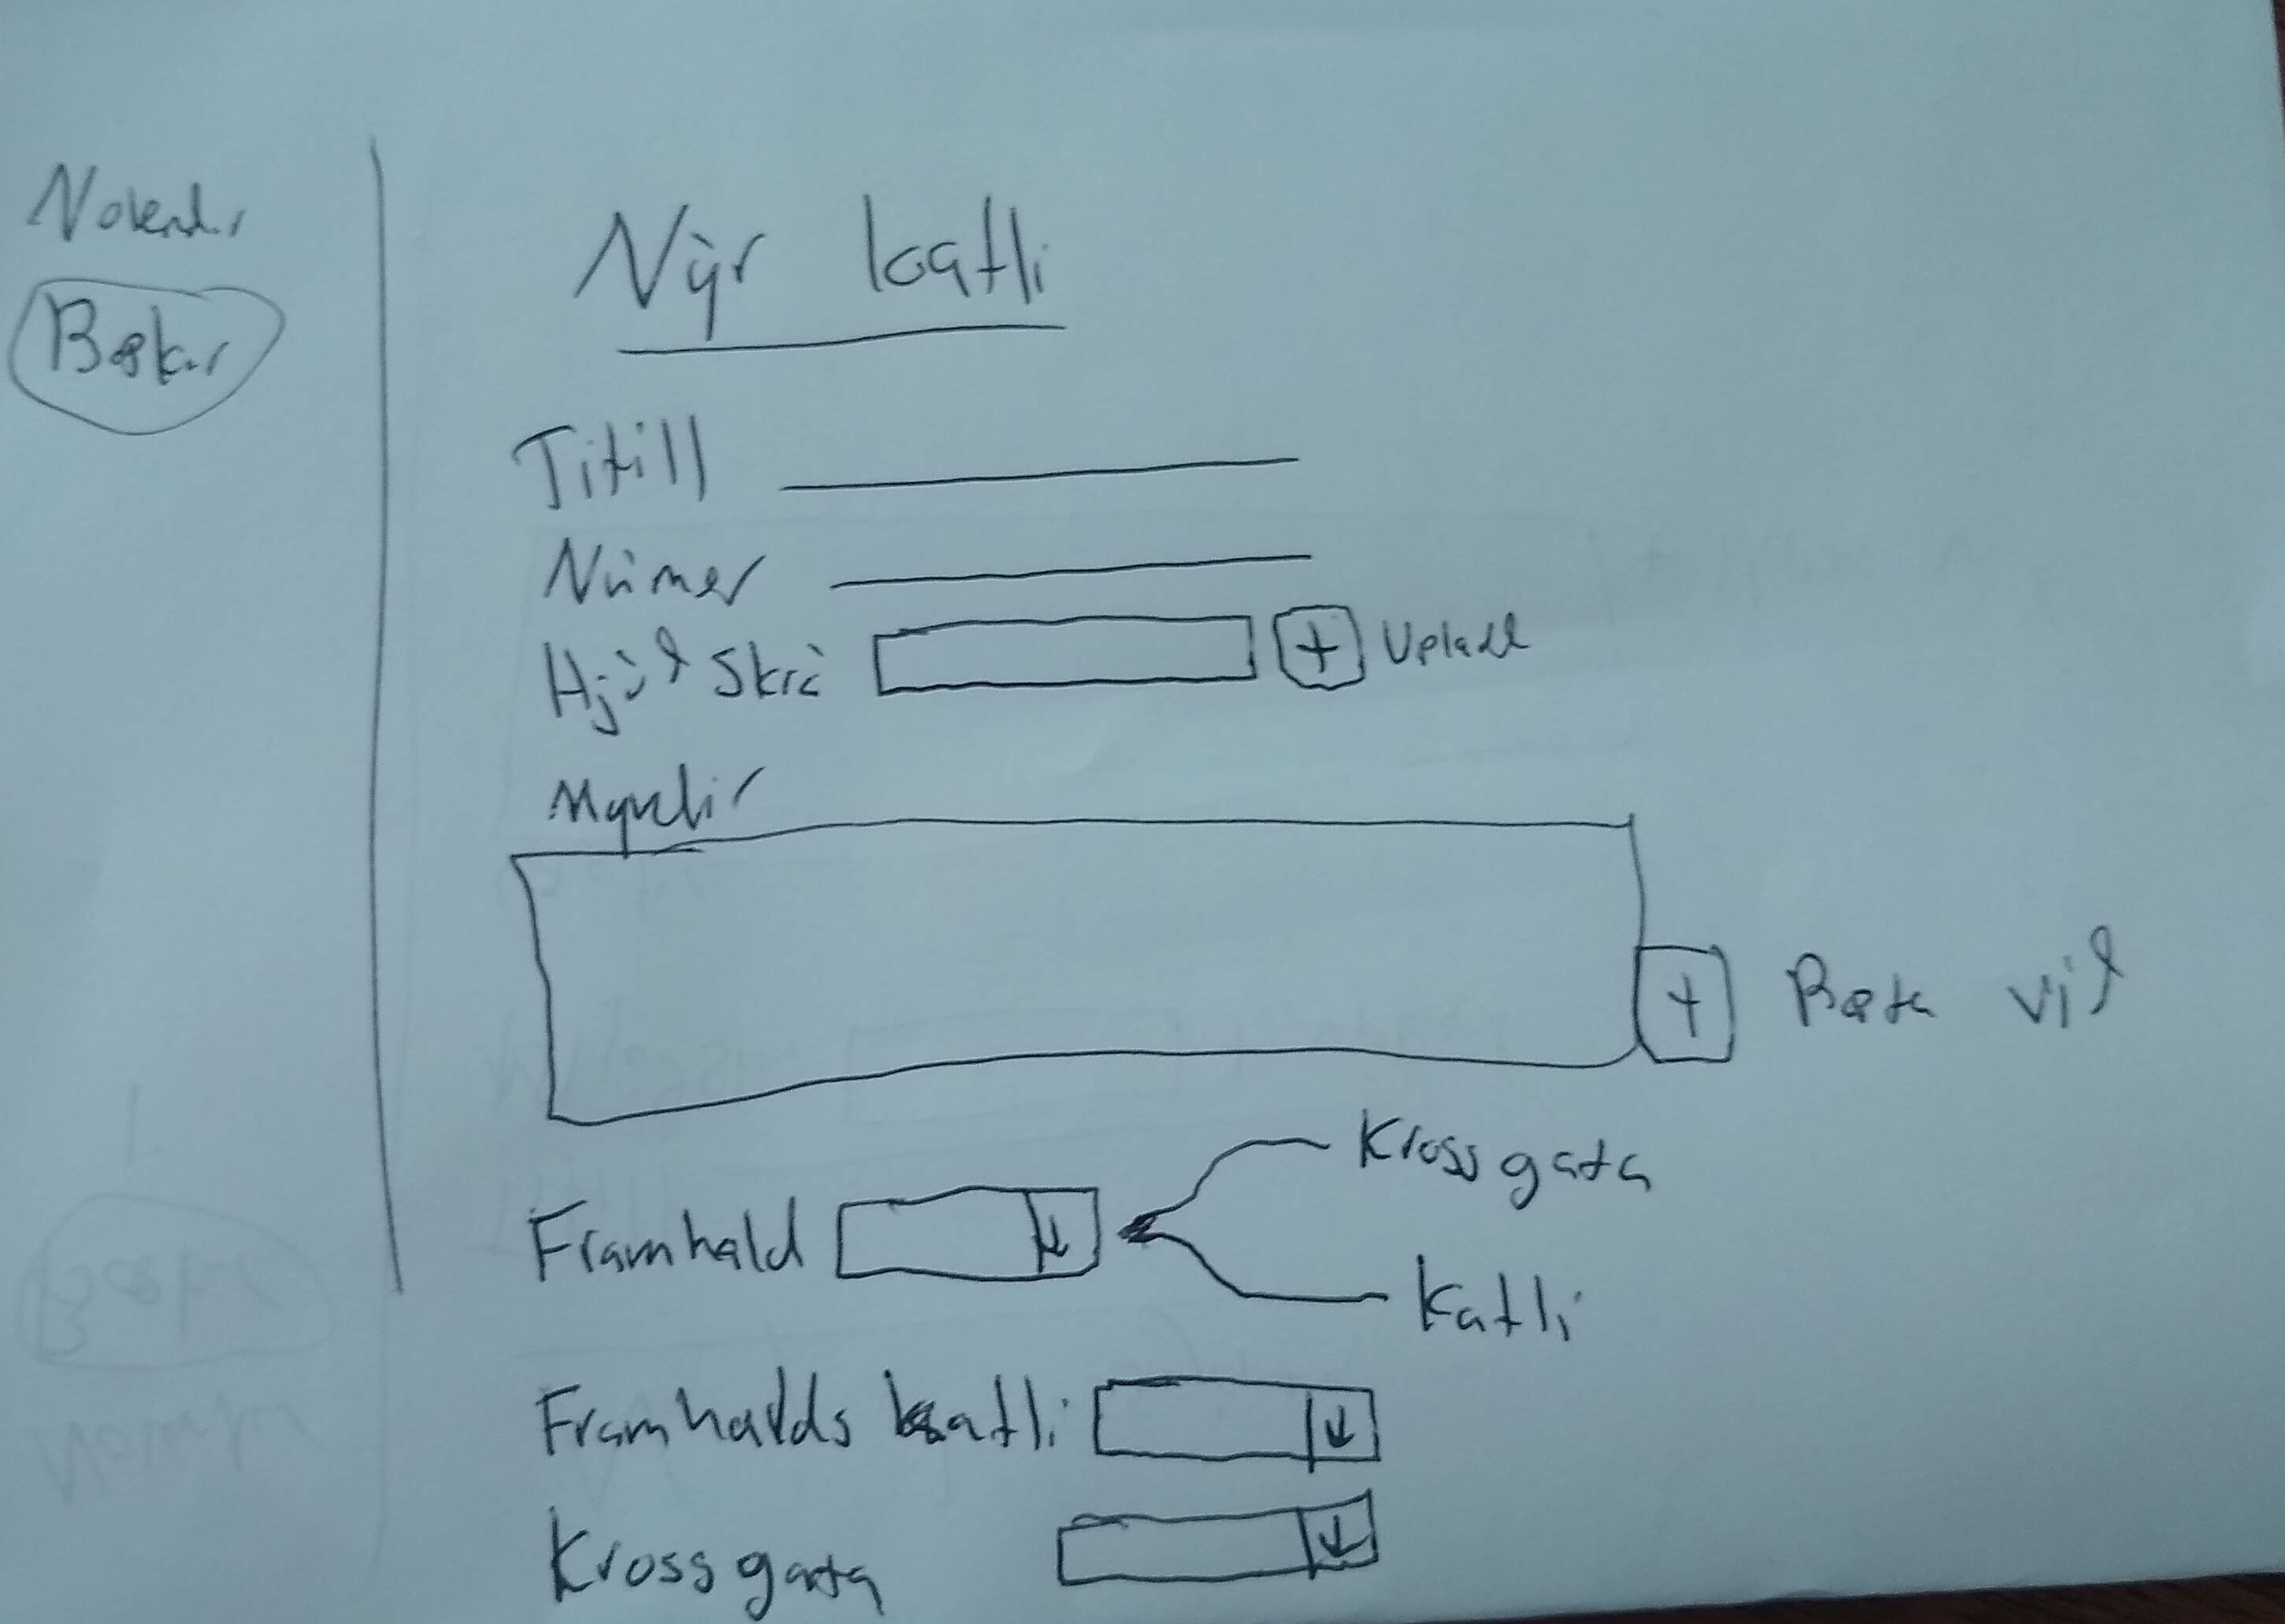 Notendur
Bækur
Nýr kafli
Titill
Númer
Hljóð Skrá + Upload
Myndir
+ Bæta við
Framhald
Krossgata
Kafli
Framhalds kafli
Krossgata